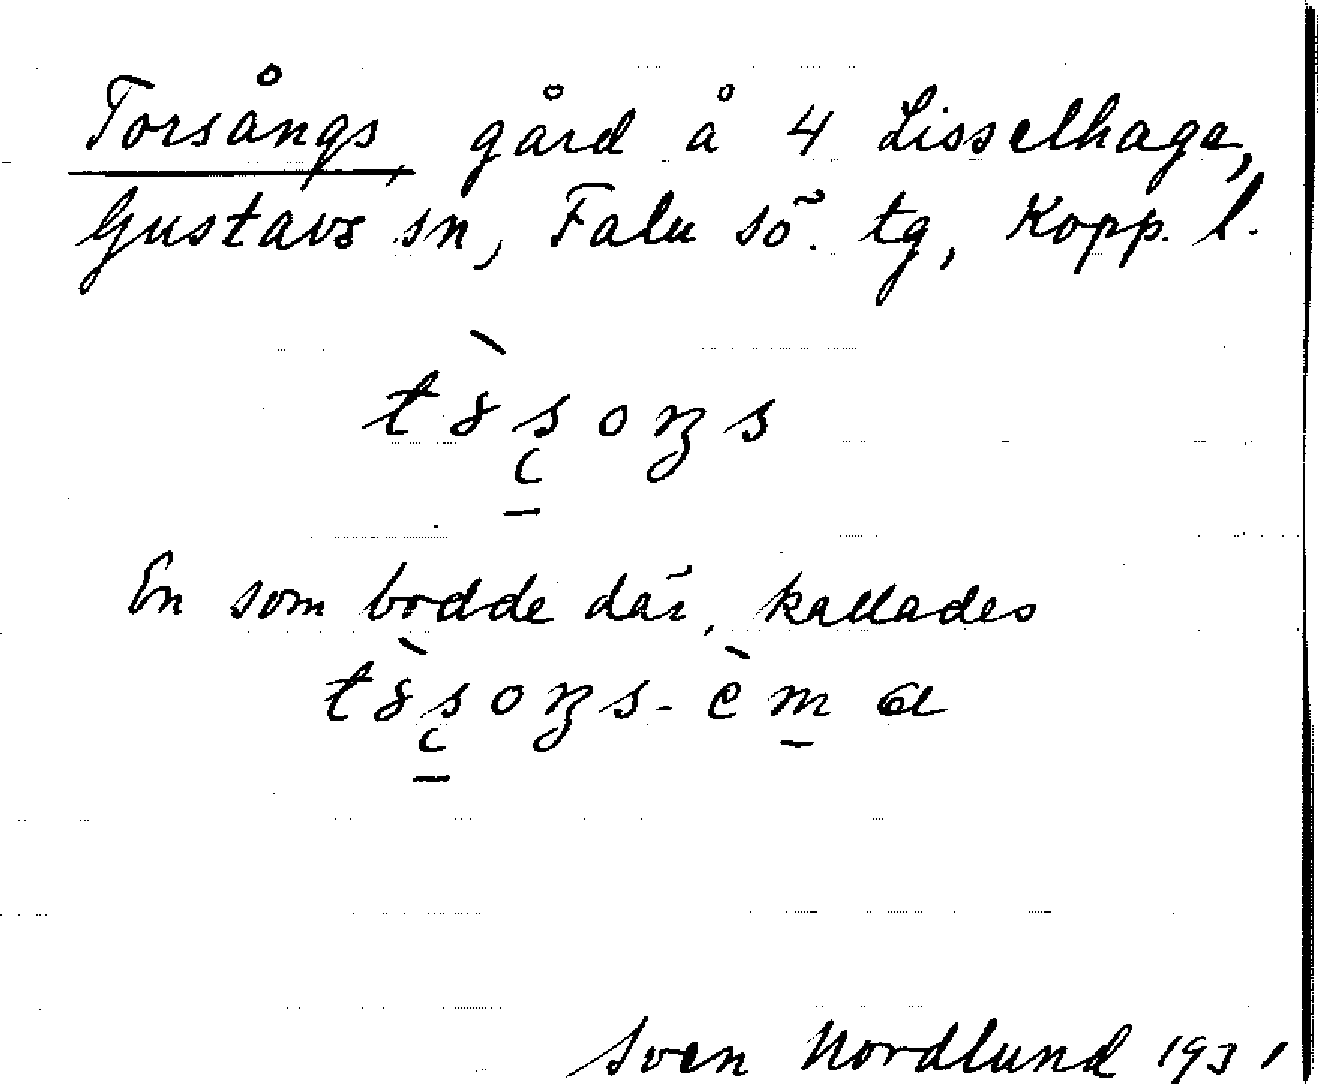 Torsångs, gård å 4 Lisselhaga,
Gustavs sn, Falu sö. tg, Kopp. l.
En som bodde där, kallades
Sven Nordlund 1931